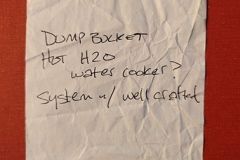 DUMP BUCKET
HOT H2O
water cooker?
System w/ well crafted